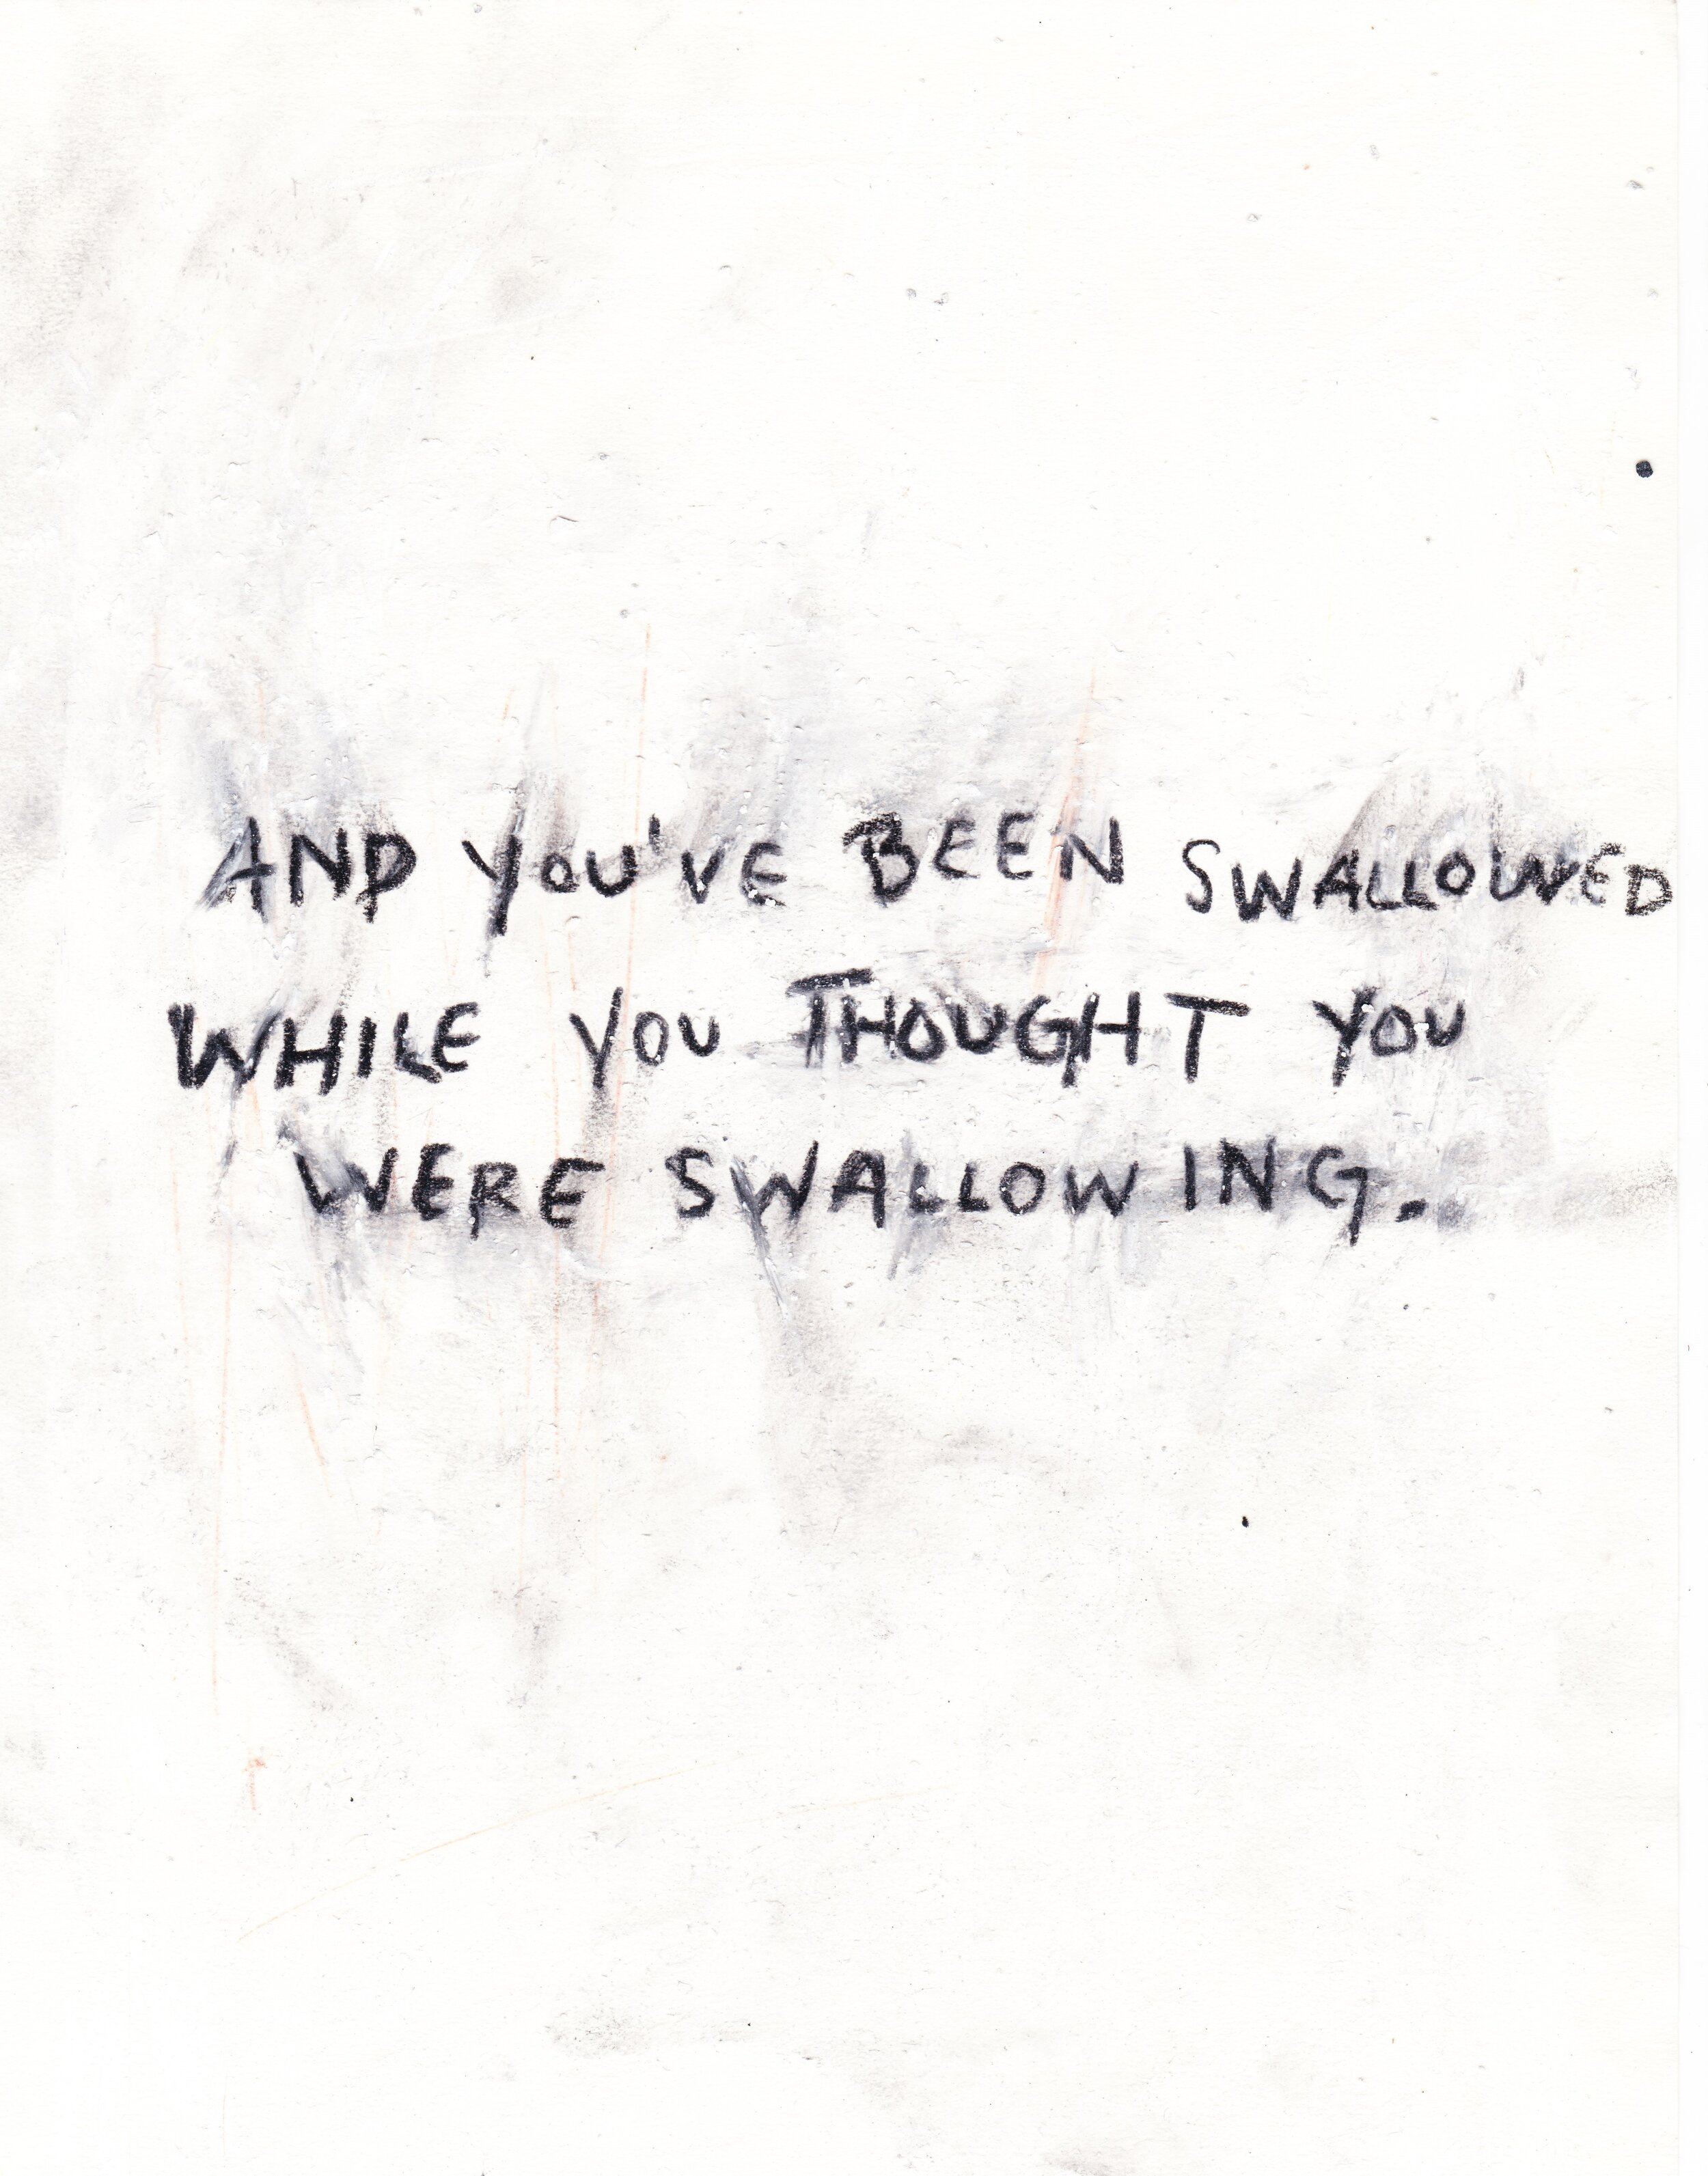 AND YOU'VE BEEN SWALLOWED
WHILE YOU THOUGHT YOU
WERE SWALLOWING.